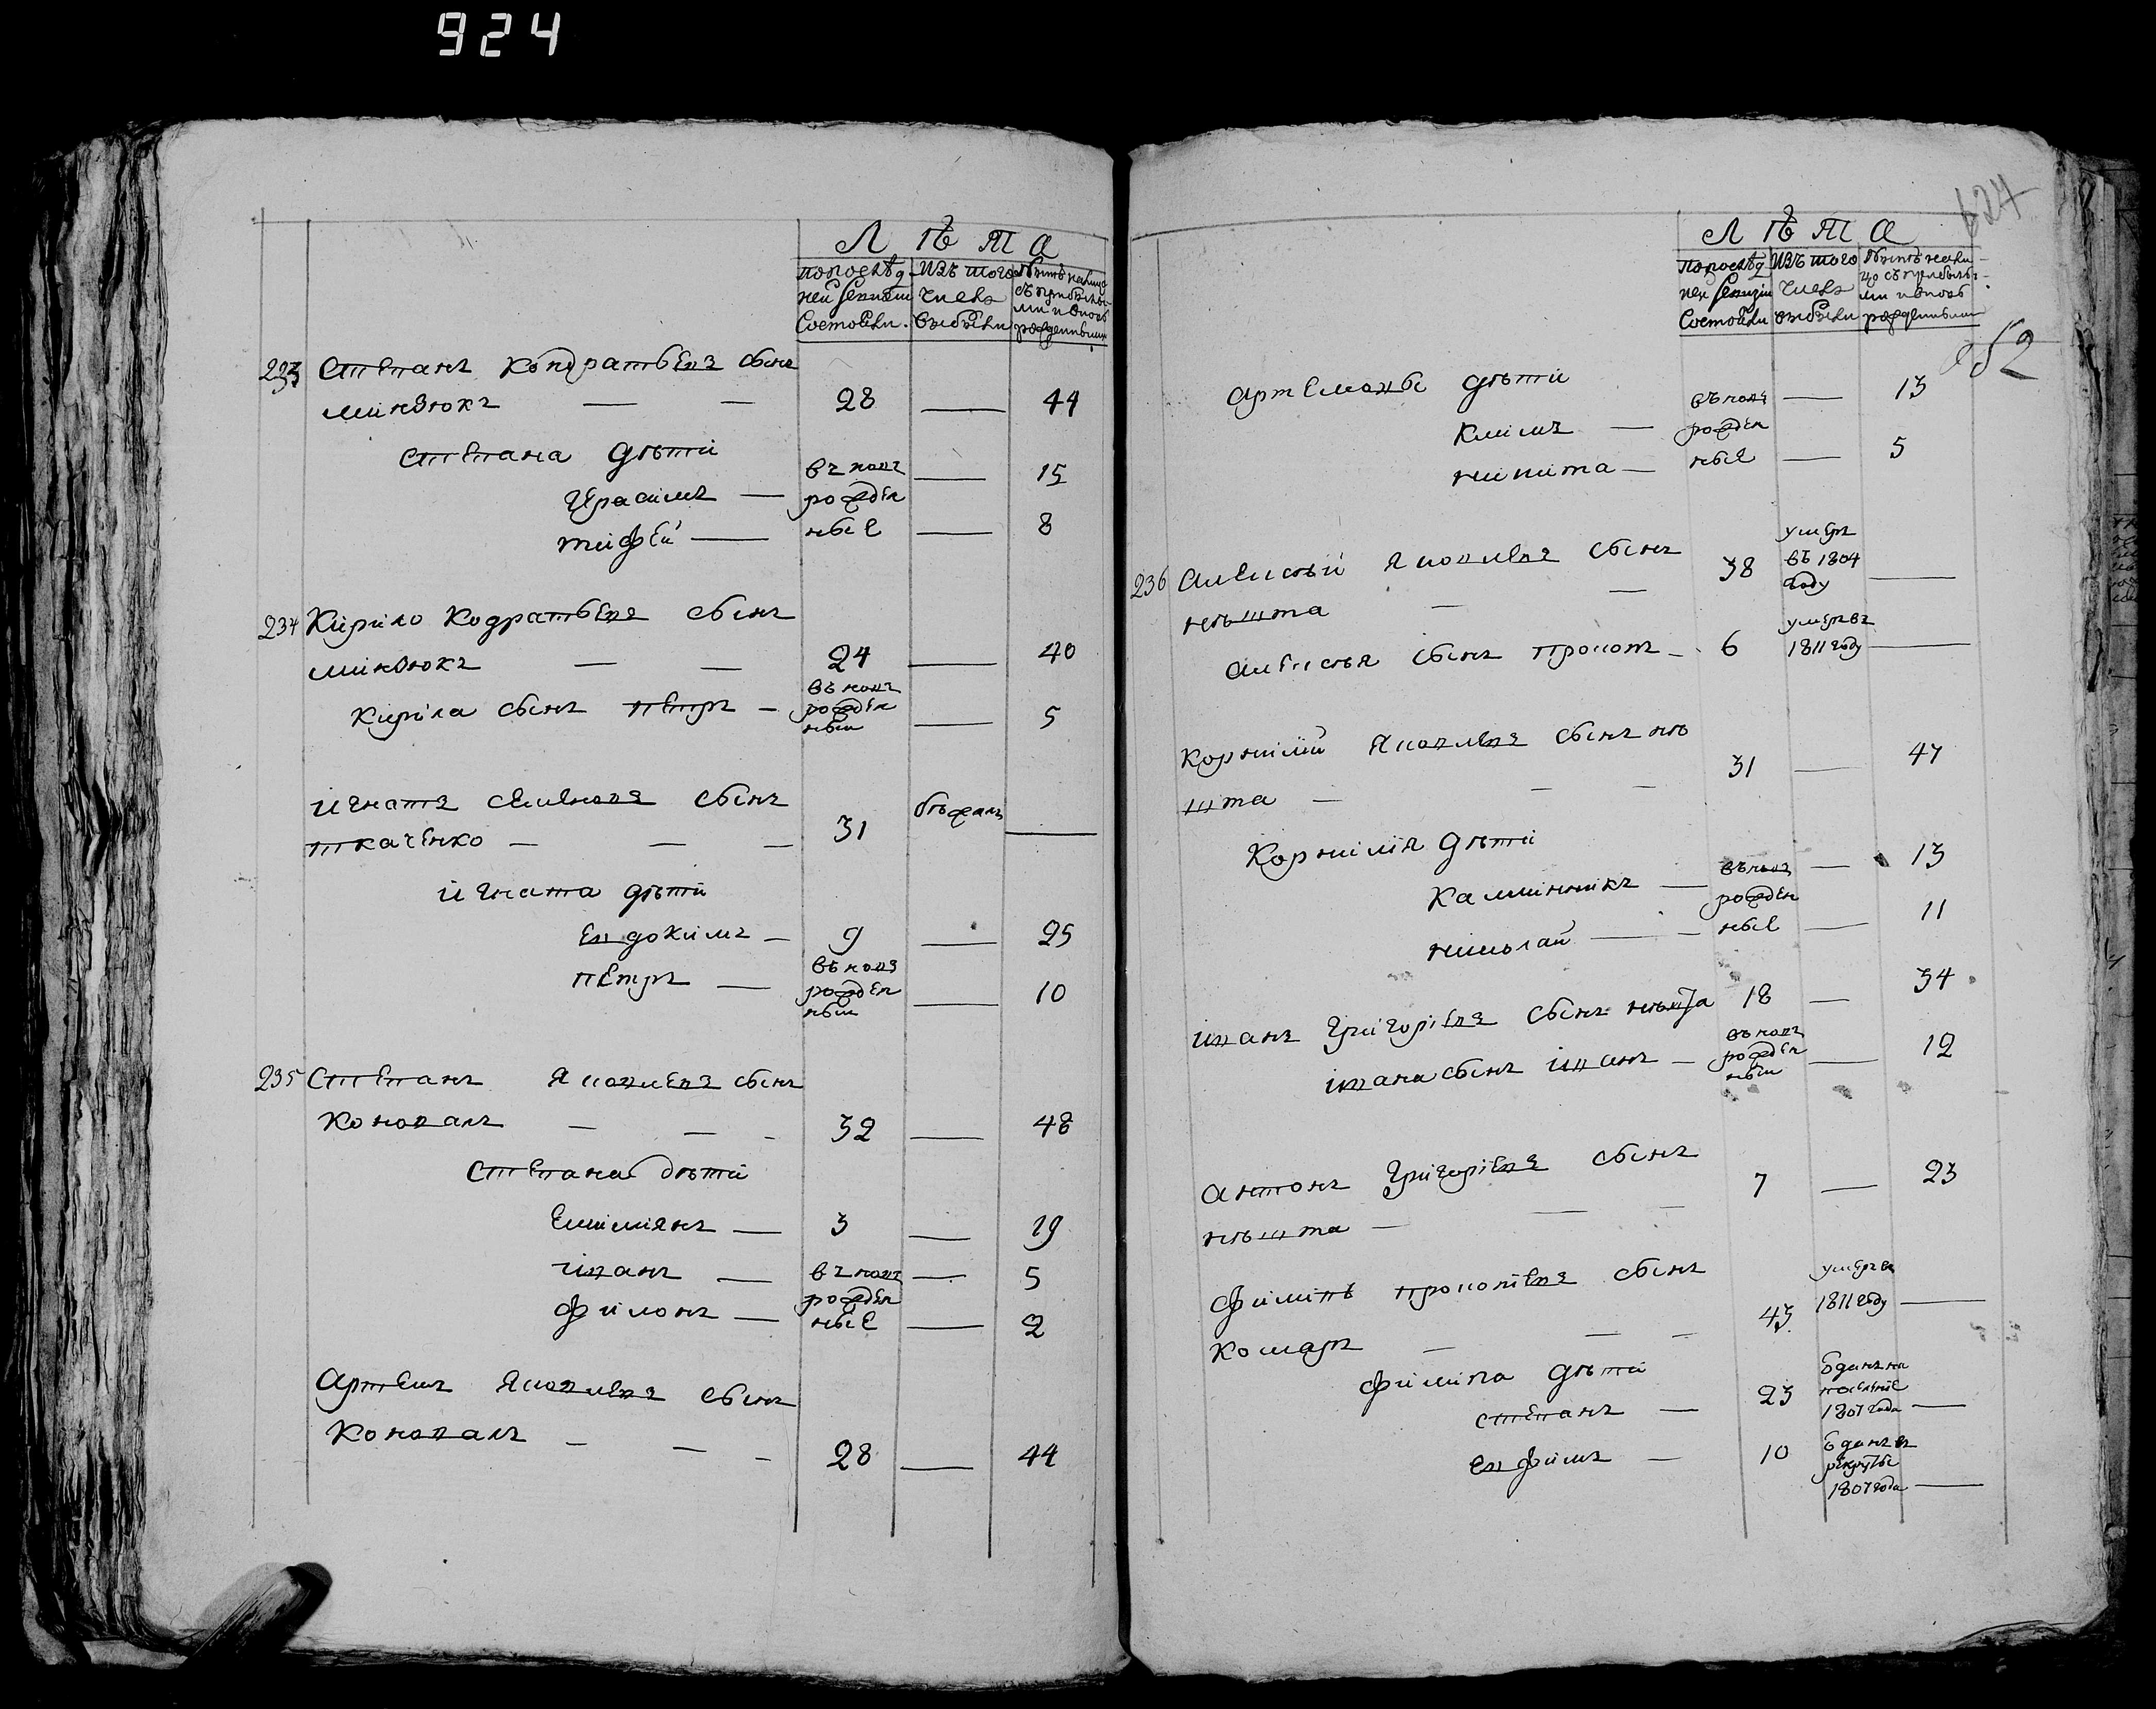 924
Л Ѣ Т А
попослѣд
ней ревизіи
состояли.
Изъ того
числа
выбыли
Нынѣ налицо
съ прибылы-
ми и вновь
рожденными
233 Степанъ Кондратьевъ сынъ
28 44
Минзюкъ
Степана дѣти
Герасимъ въ новъ 15
рожден
Тифей ные 8
234 Кирило Кодратьевъ сынъ
Минзюкъ 24 40
Кирила сынъ Петръ въ новъ рожден ный 5
Игнатъ Семеновъ сынъ
Ткаченко 31 бѣжалъ
Игната дѣти
Евдокимъ 9 25
Петръ въ новъ рожден ный 10
235 Степанъ Яковлевъ сынъ
Коновалъ 32 48
Степана дѣти
Емиліянъ 3 19
Иванъ въ новъ 5
рожден
Филонъ ные 2
Артемъ Яковлевъ сынъ
Коновалъ 28 44
624
Л Ѣ Т А
попослѣд
ней ревизіи
состояли
Изъ того
числа
выбыли
Нынѣ нали-
цо съ прибылы-
ми и вновь
рожденными
Артемовы дѣти
Климъ въ новъ 13
рожден
Никита ные 5
236 Алексѣй Яковлевъ сынъ 38 умеръ въ 1804 году
Нѣшта
Алексѣя сынъ Прокопъ 6 умеръ въ 1811 году
Корнилій Яковлевъ сынъ Нѣ
31 47
шта
Корнилія дѣти
Каллинникъ въ новъ 13
рожден
Николай ные 11
Иванъ Григоріевъ сынъ Нѣшта 18 34
Ивана сынъ Иванъ въ новъ рожден ный 12
Антонъ Григоріевъ сынъ
7 23
Нѣшта
Филипъ Прокопіевъ сынъ
43 умеръ въ 1811 году
Комаръ
Филипа дѣти
Степанъ 23 отданъ на поселеніе 1807 года
Евфимъ 10 отданъ въ рекруты 1807 года